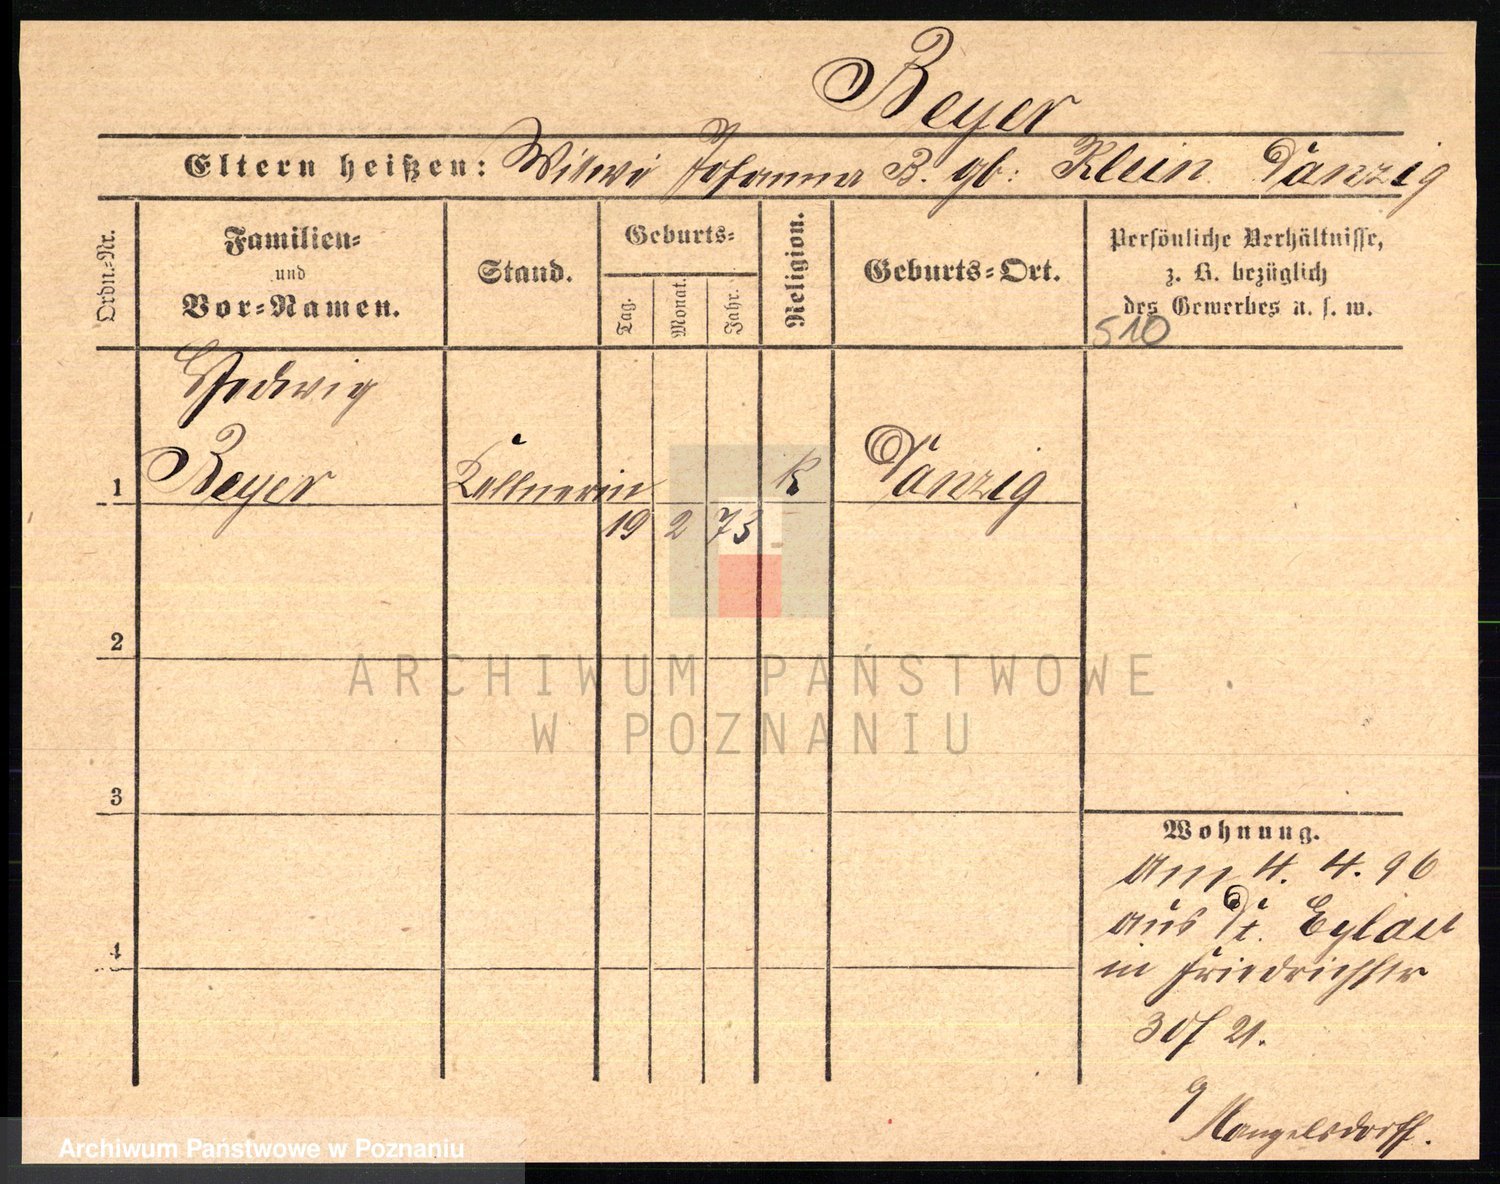 Beyer
Eltern heißen: Witwe Johanna B. gb: Klein Danzig
Ordn.-Nr.
Familien-
und
Vor-Namen.
Stand.
Geburts-
Tag.
Monat.
Jahr.
Religion.
Geburts-Ort.
Persönliche Verhältnisse,
z. B. bezüglich
des Gewerbes u. s. w.
510
Hedwig
1 Beyer Kellnerin k Danzig
19 2 73
2
3
4
Wohnung.
am 4. 4. 96
aus Dt. Eylau
in Friedrichstr
30 21.
Mangelsdorff.
ARCHIWUM PAŃSTWOWE
W POZNANIU
Archiwum Państwowe w Poznaniu